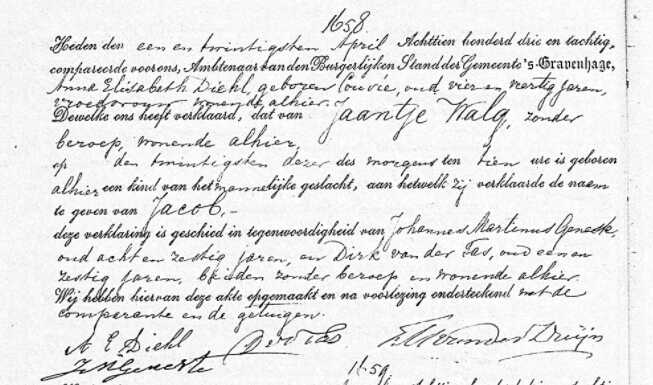 1658
Heden den een en twintigsten April Achttien honderd drie en tachtig,
compareerde voor ons, Ambtenaar van den Burgerlijken Stand der Gemeente 's-Gravenhage,
Anna Elisabeth Diehl, geboren Couvie, oud vier en veertig jaren,
vroedvrouw, wonende alhier.
Dewelke ons heeft verklaard, dat van Jaantje Walg, zonder
beroep, wonende alhier,
op den twintigsten dezer des morgens ten tien ure is geboren
alhier een kind van het mannelijke geslacht, aan hetwelk zij verklaarde de naam
te geven van Jacob.
deze verklaring is geschied in tegenwoordigheid van Johannes Martinus
oud acht en zestig jaren, en Dirk van der Tas, oud een en
zestig jaren, beiden zonder beroep en wonende alhier.
Wij hebben hiervan deze akte opgemaakt en na voorlezing onderteekend met de
comparante en de getuigen.
A E Diehl DvdTas
1659